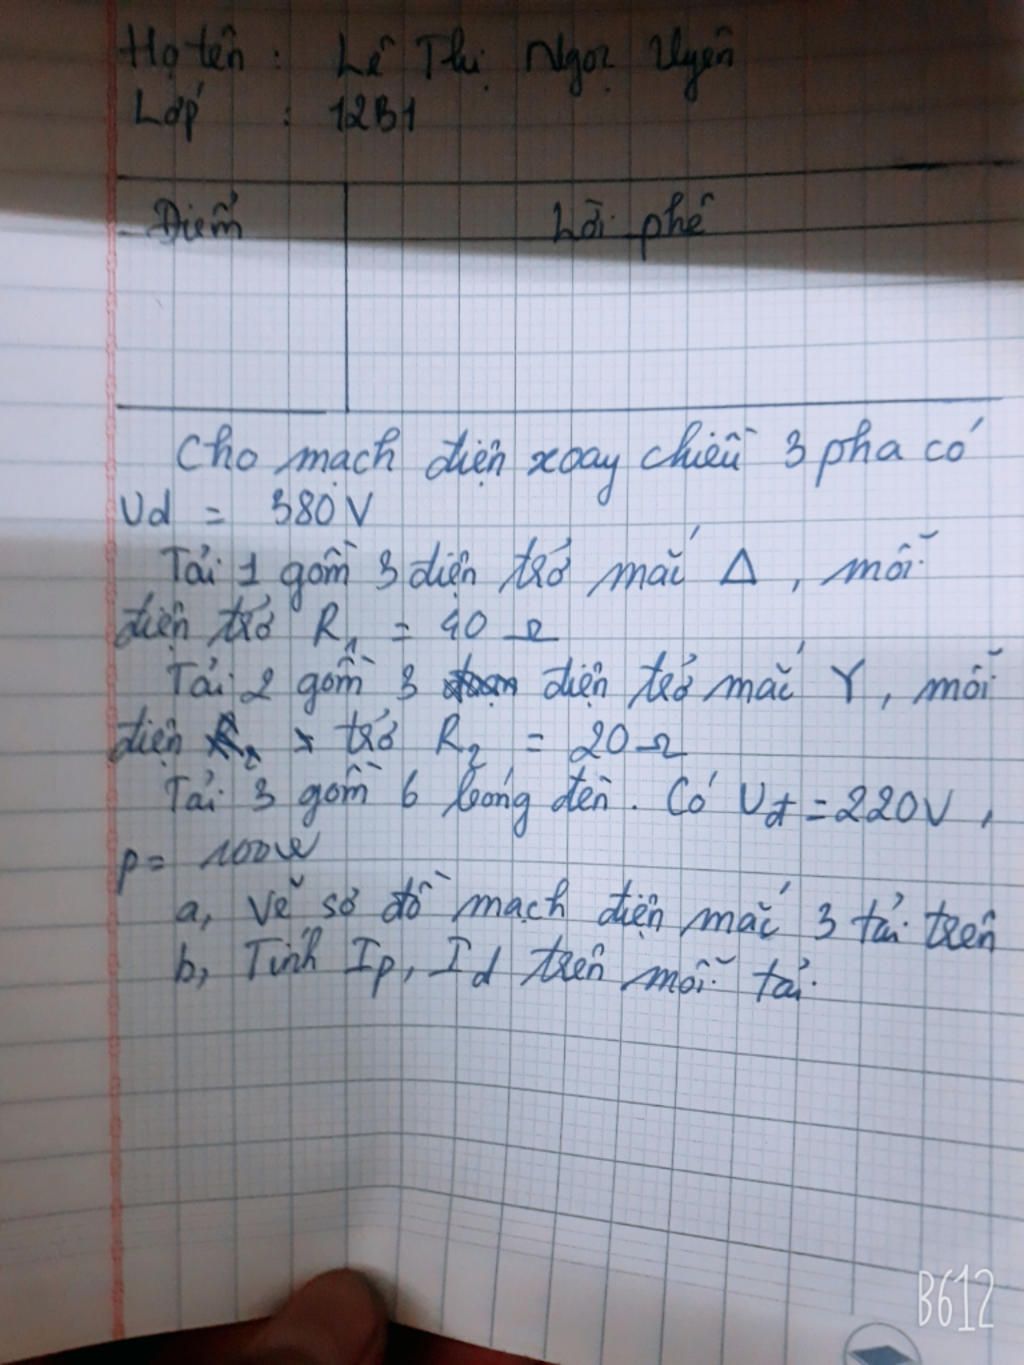 Họ tên : Lê Thị Ngọc Uyên
Lớp : 12B1
Điểm Lời phê
Cho mạch điện xoay chiều 3 pha có
Ud = 380V
Tải 1 gồm 3 điện trở mắc Δ, mỗi
điện trở R₁ = 40 Ω
Tải 2 gồm 3 điện trở mắc Y, mỗi
điện trở R₂ = 20 Ω
Tải 3 gồm 6 bóng đèn. Có Uđ = 220V,
p = 100W
a, Vẽ sơ đồ mạch điện mắc 3 tải trên
b, Tính Ip, Id trên mỗi tải.
B612